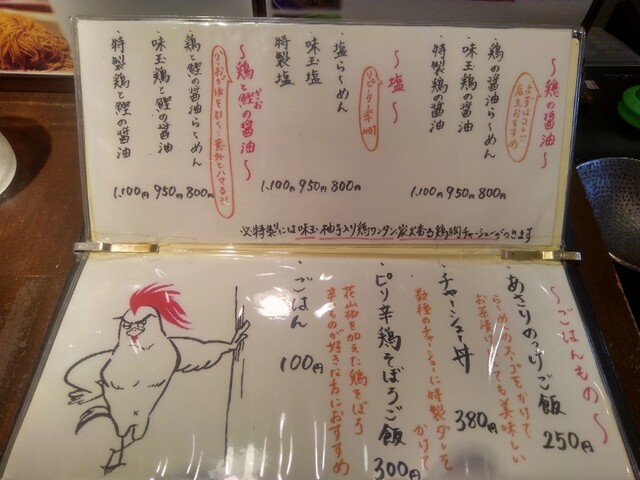 ～鶏の醤油～
まずはコレ!
店主おすすめ
・鶏の醤油ら～めん 800円
・味玉鶏の醤油 950円
・特製鶏の醤油 1,100円
～塩～
リピーター率No1
・塩ら～めん 800円
・味玉塩 950円
・特製塩 1,100円
～鶏と鰹の醤油～
かつお
・鶏と鰹の醤油ら～めん 800円
・味玉鶏と鰹の醤油 950円
・特製鶏と鰹の醤油 1,100円
※特製には味玉、柚子入り鶏ワンタン、炭火香る鶏胸チャーシューがつきます
～ごはんもの～
・あさりのっけご飯 250円
ら～めんのスープをかけて
お茶漬け
ても美味しい
・チャーシュー丼 380円
数種のチャーシューに特製ダレを
かけて
・ピリ辛鶏そぼろご飯 300円
花山椒を加えた鶏そぼろ
辛ものが好きな方におすすめ
・ごはん 100円